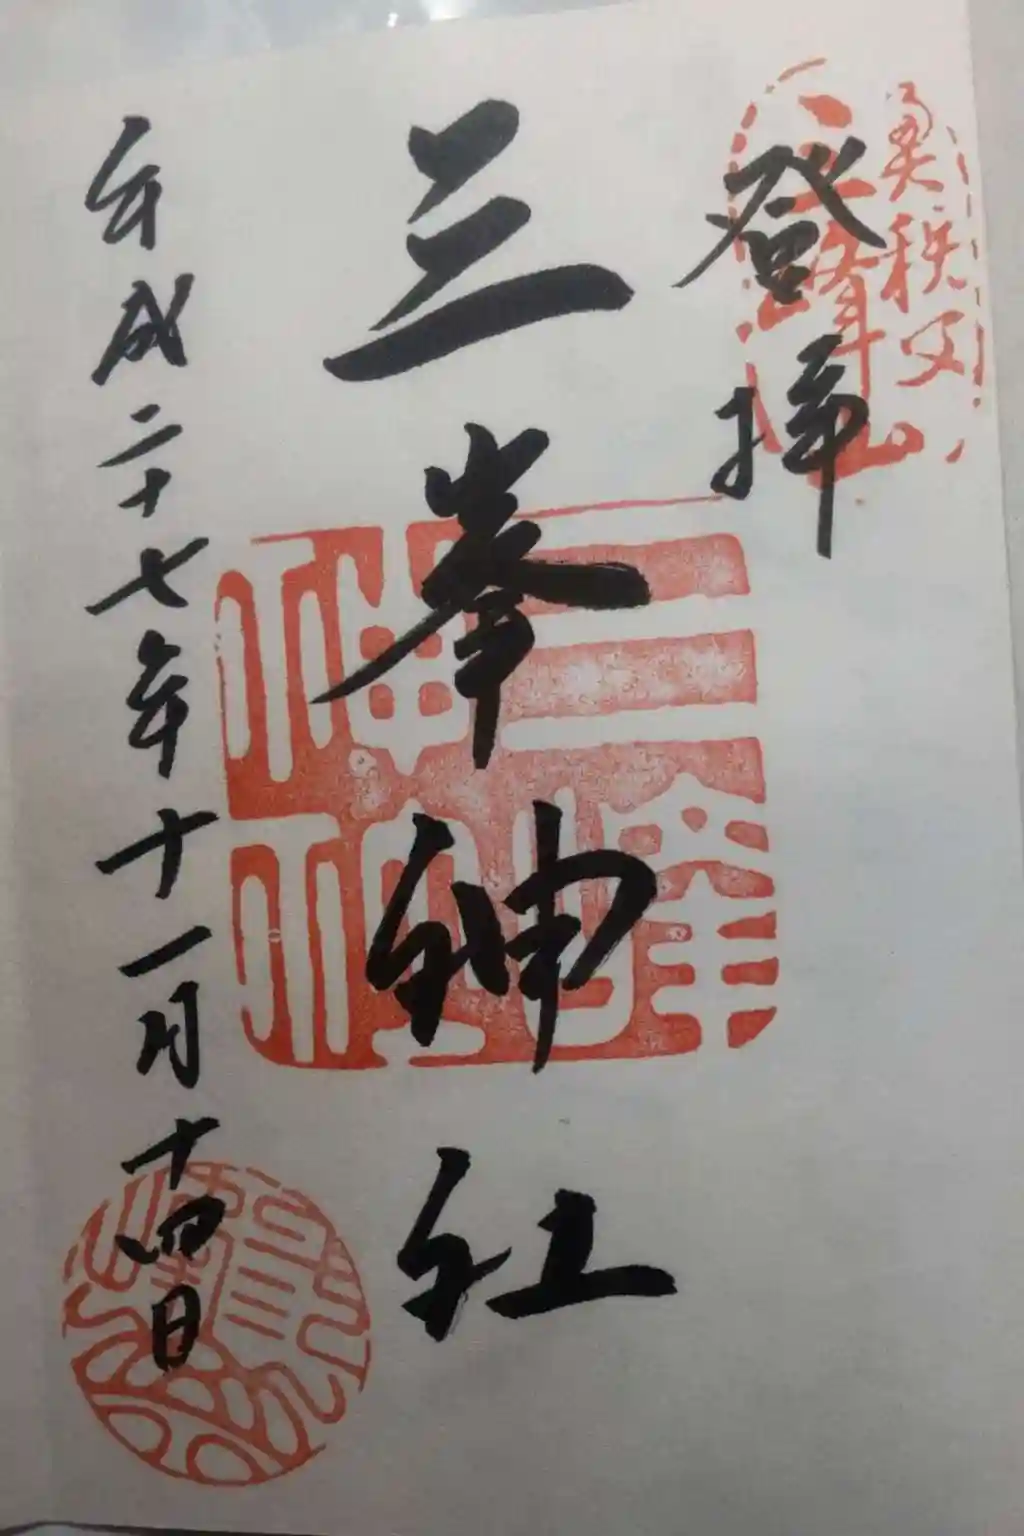 奥秩父
三峰山
登拝
三峯神社
三峯神社
平成二十七年十一月十四日